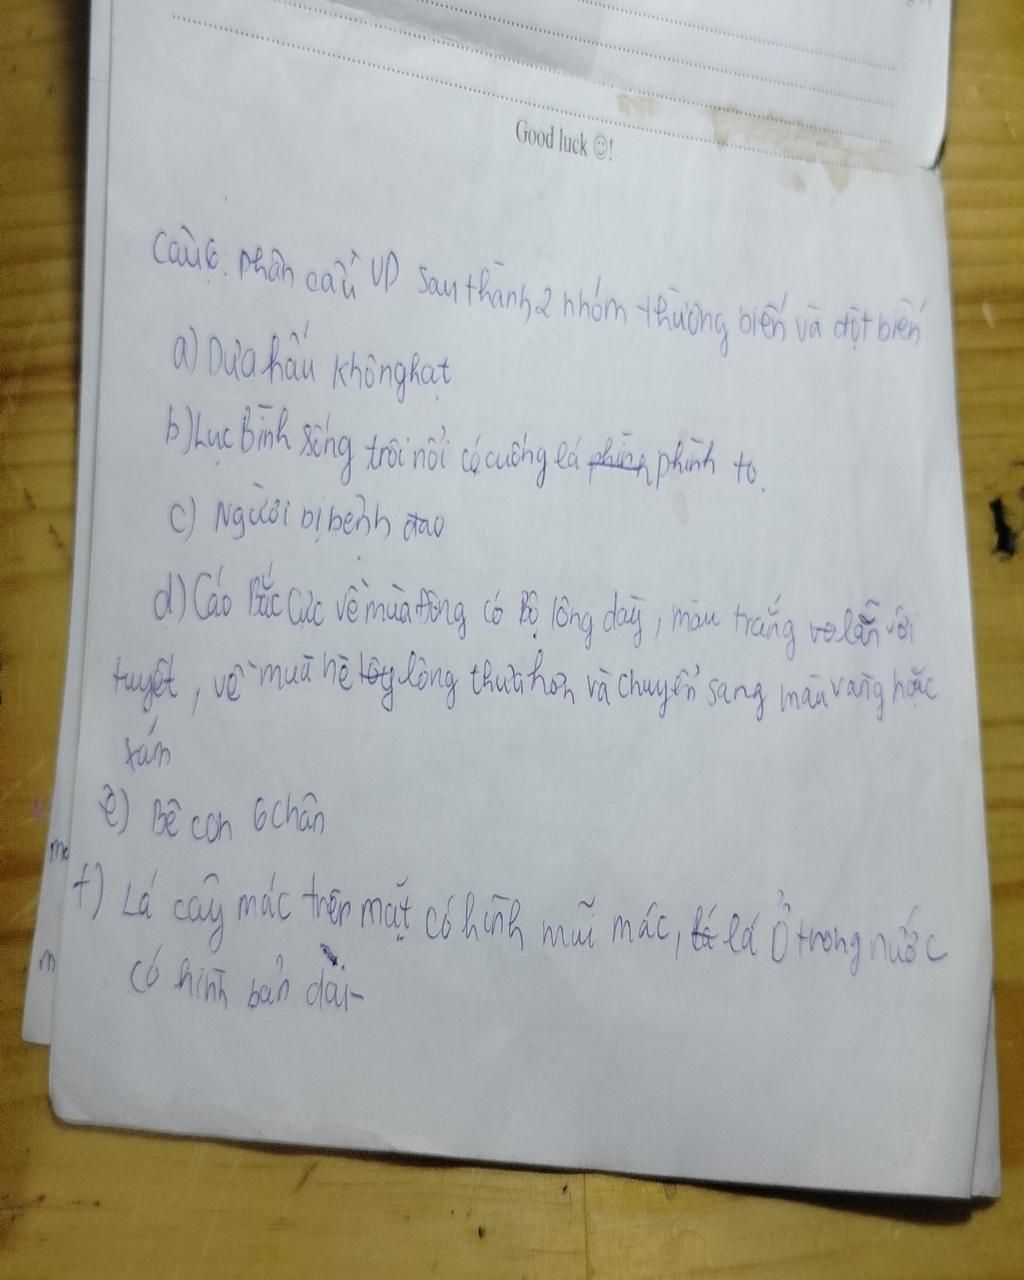 Good luck ☺!
Câu6: phân các VD sau thành 2 nhóm thường biến và đột biến
a) Dưa hấu không hạt
b) Lục Bình sống trôi nổi có cuống lá phình to.
c) Người bị bệnh đao
d) Cáo Bắc Cực về mùa đông có Bộ lông dày, màu trắng lẫn với
tuyết, về mùa hè lông thưa hơn và chuyển sang màu vàng hoặc
xám
e) Bê con 6 chân
f) Lá cây mác trên mặt có hình mũi mác, lá Ở trong nước
có hình bản dài